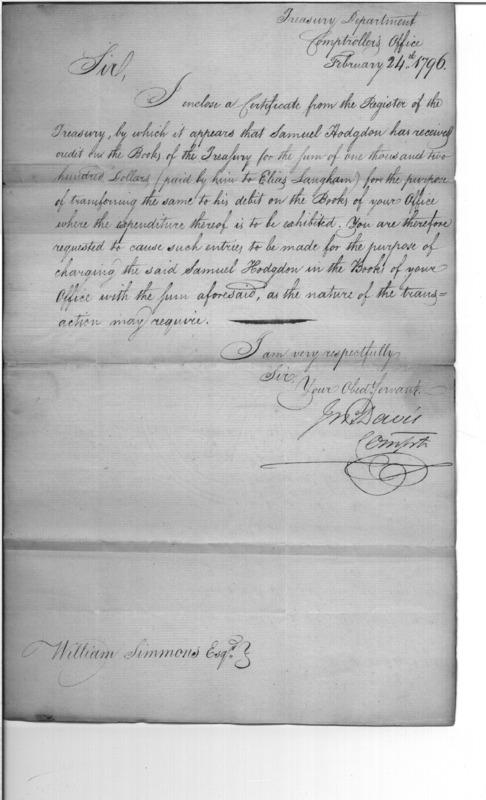 Treasury Department
Comptroller's Office
February 24th 1796.
Sir,
I enclose a Certificate from the Register of the
Treasury, by which it appears that Samuel Hodgdon has received
credit on the Books of the Treasury for the sum of one thousand two
hundred Dollars (paid by him to Elias Langham) for the purpose
of transferring the same to his debit on the Books of your Office
where the expenditure thereof is to be exhibited. You are therefore
requested to cause such entries to be made for the purpose of
charging the said Samuel Hodgdon in the Books of your
Office with the sum aforesaid, as the nature of the trans=
action may require.
I am very respectfully
Sir,
Your Obedt. Servant.
Jno. Davis
Comptr.
William Simmons Esqr.